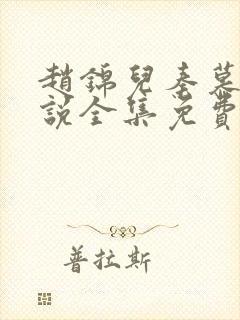 趙錦兒秦慕
說全集免費
普拉斯